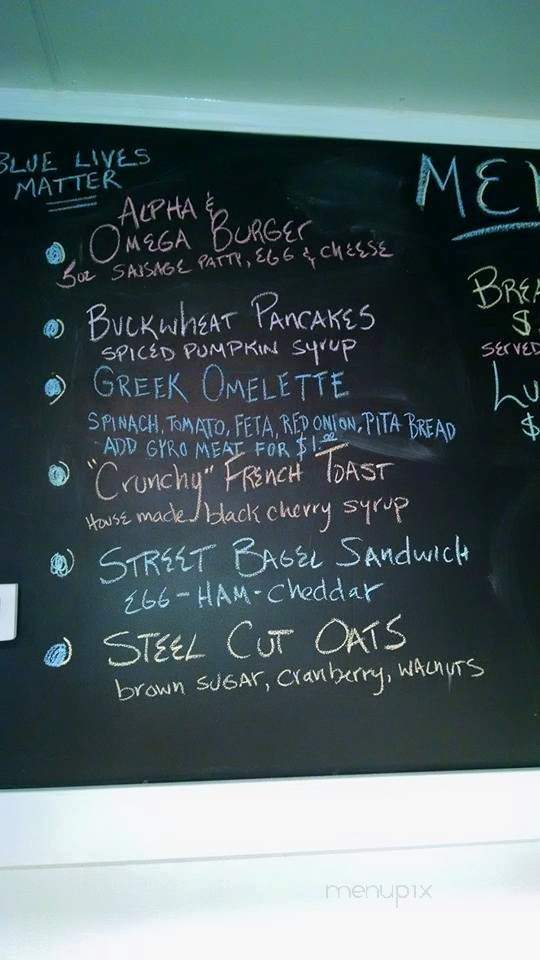 BLUE LIVES
MATTER
ALPHA &
OMEGA BURGER
5oz SAUSAGE PATTY, EGG & CHEESE
BUCKWHEAT PANCAKES
SPICED PUMPKIN SYRUP
GREEK OMELETTE
SPINACH, TOMATO, FETA, RED ONION, PITA BREAD
ADD GYRO MEAT FOR $1.00
"Crunchy" FRENCH TOAST
House made black cherry syrup
STREET BAGEL Sandwich
EGG - HAM - Cheddar
STEEL CUT OATS
brown SUGAR, Cranberry, WALNUTS
ME
BREA
$
SERVED
LU
$
menupix